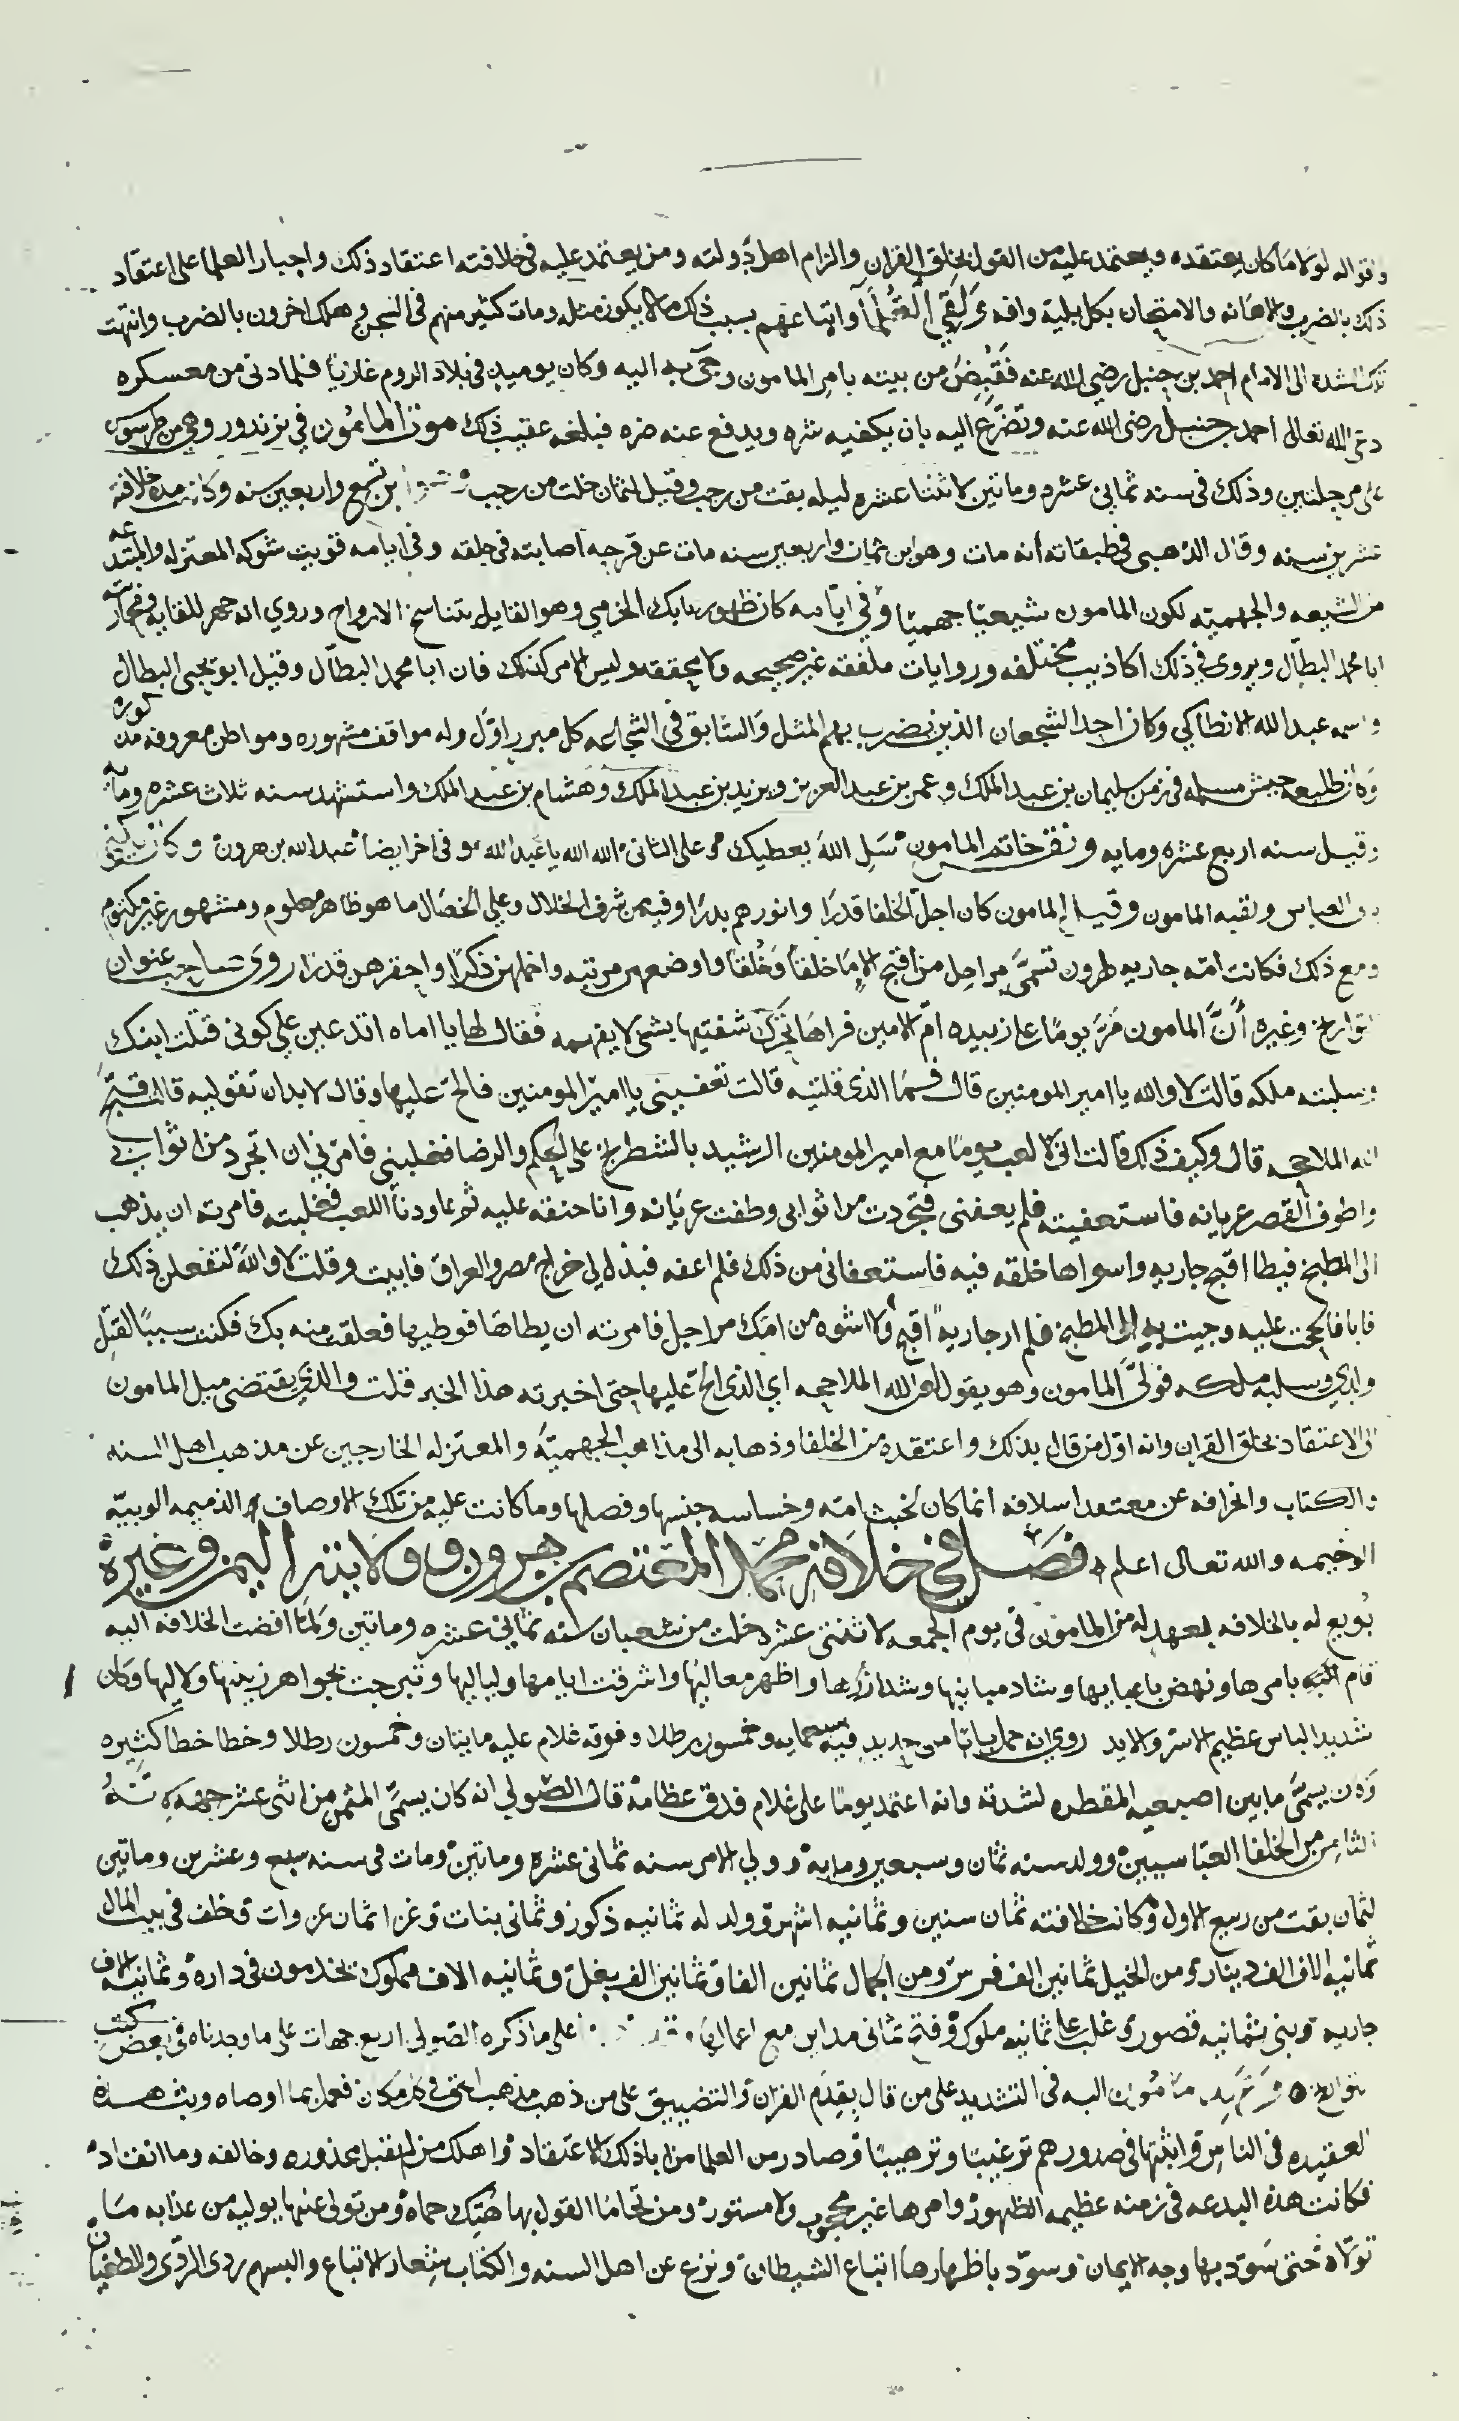 واقواله لولا ما كان يعتقده ويعتمد عليه من القول بخلق القران والزام اهل دولته ومن يعتمد عليه في خلافته اعتقاد ذلك واجبار العلما على اعتقاد
ذلك بالضرب والاهانه والامتحان بكل بلية وافه ولقي العلما واتباعهم بسبب ذلك ما لا يكون مثله ومات كثير منهم في السجن وهلك اخرون بالضرب وانتهت
تلك الشده الى الامام احمد بن حنبل رضي الله عنه فقبض من بيته بامر المامون وجي به اليه وكان يوميذ في بلاد الروم غازيا فلما دنى من معسكره
دعى الله تعالى احمد بن حنبل رضي الله عنه وتضرع اليه بان يكفيه شره ويدفع عنه ضره فبلغه عقيب ذلك موت المامون في بزندور وهي من طرسوس
على مرحلتين وذلك في سنه ثماني عشره وماتين لاثنتا عشره ليله بقت من رجب وقيل لثمان خلت من رجب بن تسع واربعين سنه وكانت مده خلافته
عشرين سنه وقال الذهبي في طبقاته انه مات وهو ابن ثمان واربعين سنه مات عن قرحه اصابته في حلقه وفي ايامه قويت شوكه المعتزله والمبتدعه
من الشيعه والجهميه لكون المامون شيعيا جهميا وفي ايامه كان ظهور بابك الخرمي وهو القايل بتناسخ الارواح وروي انه جهر للقايه ومحاربته
ابا محمد البطال ويروى في ذلك اكاذيب مختلفه وروايات ملفقه غير صحيحه ولا محققه وليس الامر كذلك فان ابا محمد البطال وقيل ابو يحيى البطال
واسمه عبد الله الانطاكي وكان احد الشجعان الذين يضرب بهم المثل والسابق في الشجاعه كل مبرر اول وله مواقف مشهوره ومواطن معروفه مذكوره
وكان طليعه جيش مسلمه في زمن سليمان بن عبد الملك وعمر بن عبد العزيز ويزيد بن عبد الملك وهشام بن عبد الملك واستشهد سنه ثلاث عشره ومايه
وقيل سنه اربع عشره ومايه ونقش خاتم المامون سل الله يعطيك وعلى الثاني الله الله يا عبد الله وفي اخر ايضا عبد الله بن هرون وكان يكنى
ابى العباس ولقبه المامون وقيل المامون كان اجل الخلفا قدرا وانورهم بدرا وفيه من شرف الخلال وعلي الخصال ما هو ظاهر معلوم ومشهور غير مكتوم
ومع ذلك فكانت امه جاريه طرون تسمى مراجل من اقبح الاما خلقا وخلقا واوضعهن مرتبه واخملهن ذكرا واحقرهن قدرا روى صاحب عنوان
التواريخ وغيره ان المامون مر يوما على زبيده ام الامين فراها تحرك شفتيها بشي لا يفهمه فقال لها يا اماه اتدعين علي كوني قتلت ابنك
وسلبته ملكه قالت لا والله يا امير المومنين قال فما الذي قلتيه قالت تعفيني يا امير المومنين فالح عليها وقال لابد ان تقوليه قالت قبح
الله الملاححه قال وكيف ذلك قالت اني لالعب يوما مع امير المومنين الرشيد بالشطرنج على الحكم والرضا فغلبني فامرني ان اتجرد من اثوابي
واطوف القصر عريانه فاستعفيته فلم يعفني فتجردت من اثوابي وطفت عريانه وانا حنقه عليه ثم عاودنا اللعب فغلبته فامرته ان يذهب
الى المطبخ فيطا اقبح جاريه واسواها خلقه فيه فاستعفاني من ذلك فلم اعفه فبذل لي خراج مصر والعراق فابيت وقلت لا والله لتفعلن ذلك
فابا فالححت عليه وجيت به الى المطبخ فلم ار جاريه اقبح ولا اشوه من امك مراجل فامرته ان يطاها فوطيها فعلقت منه بك فكنت سببا لقتل
ولدي وسلبه ملكه فولى المامون وهو يقول لعن الله الملاححه اي الذي الح عليها حتى اخبرته هذا الخبر قلت والذي يقتضي ميل المامون
الى الاعتقاد بخلق القران وانه اول من قال بذلك واعتقده من الخلفا وذهابه الى مذاهب الجهميه والمعتزله الخارجين عن مذهب اهل السنه
والكتاب وانحرافه عن معتقد اسلافه انما كان لخبث امه وخساسه جنسها وفصلها وما كانت عليه من تلك الاوصاف الذميمه الوبيه
الوخيمه والله تعالى اعلم فصل في خلافة محمد المعتصم بن هرون وولايته اليمن وغيره
بويع له بالخلافه بعهد له من المامون في يوم الجمعه لاثنتي عشره خلت من شعبان سنه ثماني عشره وماتين ولما افضت الخلافه اليه
قام بامرها ونهض باعبايها وشاد مبانيها وشد ازرها واظهر معاليها واشرقت ايامها ولياليها وتبرجت بجواهر زينتها ولاليها وكان
شديد الباس عظيم الاسر والايد روي انه حمل بابا من حديد فيه سبعمايه وخمسون رطلا وفوقه غلام عليه مايتان وخمسون رطلا وخطا خطا كثيره
وكان يسمى ما بين اصبعيه المقطره لشدته وانه اعتمد يوما على غلام فدق عظامه قال الصولي انه كان يسمى المثمن من اثنى عشر جهه
الثامن من الخلفا العباسيين وولد سنه ثمان وسبعين ومايه وولي الامر سنه ثماني عشره وماتين ومات في سنه سبع وعشرين وماتين
لثمان بقت من ربيع الاول وكانت خلافته ثمان سنين وثمانيه اشهر وولد له ثمانيه ذكور وثماني بنات وغزا ثمان غزوات وخلف في بيت المال
ثمانيه الاف الف دينار ومن الخيل ثمانين الف فرس ومن الجمال ثمانين الفا وثمانين الف بغل وثمانيه الاف مملوك يخدمون في داره وثمانيه الاف
جاريه وبنى ثمانيه قصور وغلب على ثمانيه ملوك وفتح ثماني مداين مع اعمالها على ما ذكره الصولي اربع جهات على ما وجدناه في بعض كتب
التواريخ المامون اليه في التشديد على من قال بقدم القران والتضييق على من ذهب مذهب الحق في كل مكان فعمل بما اوصاه وبث هذه
العقيده في الناس واثبتها في صدورهم ترغيبا وترهيبا وصادر من العلما من ابا ذلك الاعتقاد واهلك من لم يقبل محذوره وخالفه وما انقاد
فكانت هذه البدعه في زمنه عظيمه الظهور وامرها غير محجوب ولا مستور ومن تحاما القول بها هتك حماه ومن تولى عنها يوليه من عذابه ما
تولاه حتى سود بها وجه الايمان وسود باظهارها اتباع الشيطان ونزع عن اهل السنه والكتاب شعار الاتباع والبسهم ردى الردى والطغيان